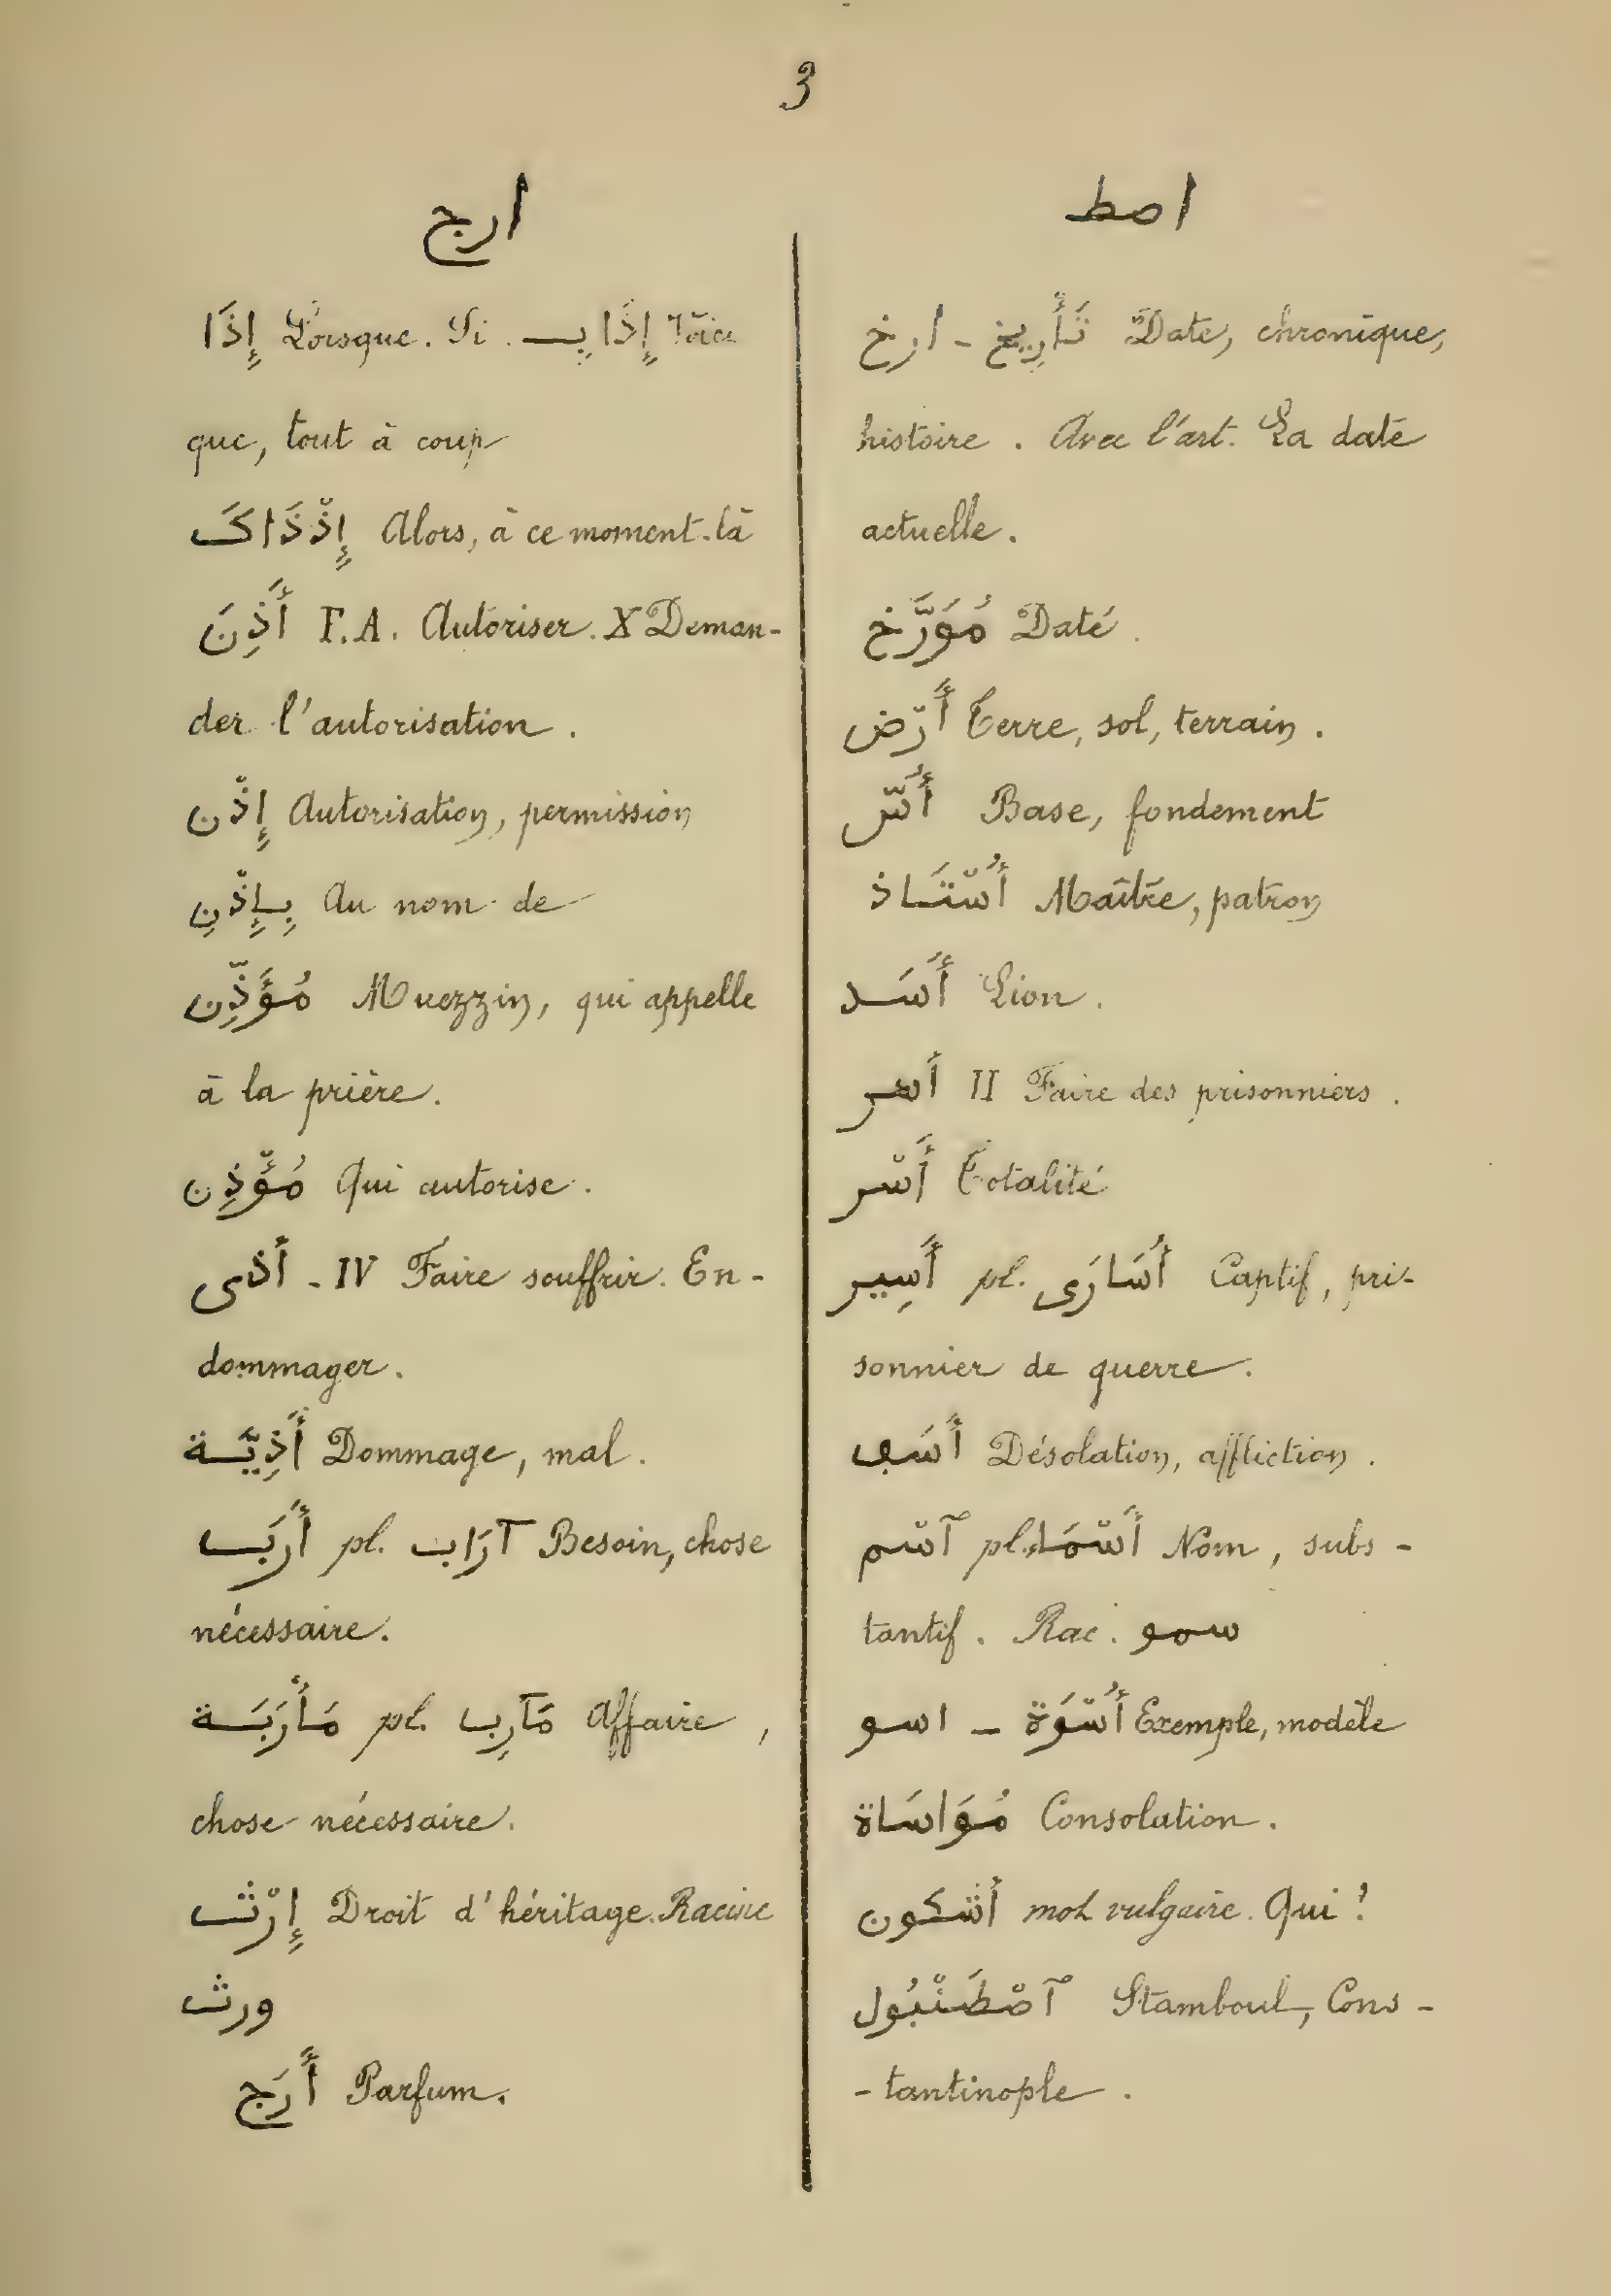 3
ارج
إِذَا Lorsque. Si. إِذَا بِـ Voici
que, tout à coup
إِذْذَاكَ Alors, à ce moment-là
أَذِنَ F.A. Autoriser. X Deman-
der l'autorisation.
إِذْن Autorisation, permission
بِإِذْنِ Au nom de
مُؤَذِّن Muezzin, qui appelle
à la prière.
مُؤْذِن Qui autorise.
أذى - IV Faire souffrir. En-
dommager.
أَذِيَّة Dommage, mal.
أَرَب pl. آرَاب Besoin, chose
nécessaire.
مَأْرَبَة pl. مَآرِب Affaire,
chose nécessaire.
إِرْث Droit d'héritage. Racine
ورث
أَرَج Parfum.
اصط
ارخ - تَأْرِيخ Date, chronique,
histoire. Avec l'art. La date
actuelle.
مُوَرَّخ Daté.
أَرْض Terre, sol, terrain.
أُسّ Base, fondement
أُسْتَاذ Maître, patron
أَسَد Lion.
أسر II Faire des prisonniers.
أَسْر Totalité
أَسِير pl. أُسَارَى Captif, pri-
sonnier de guerre.
أَسَى Désolation, affliction.
ٱسْم pl. أَسْمَاء Nom, subs-
tantif. Rac. سمو
اسو - أُسْوَة Exemple, modèle
مُوَاسَاة Consolation.
أَشْكون mot vulgaire. Qui?
ٱصْطَنْبُول Stamboul, Cons-
-tantinople.